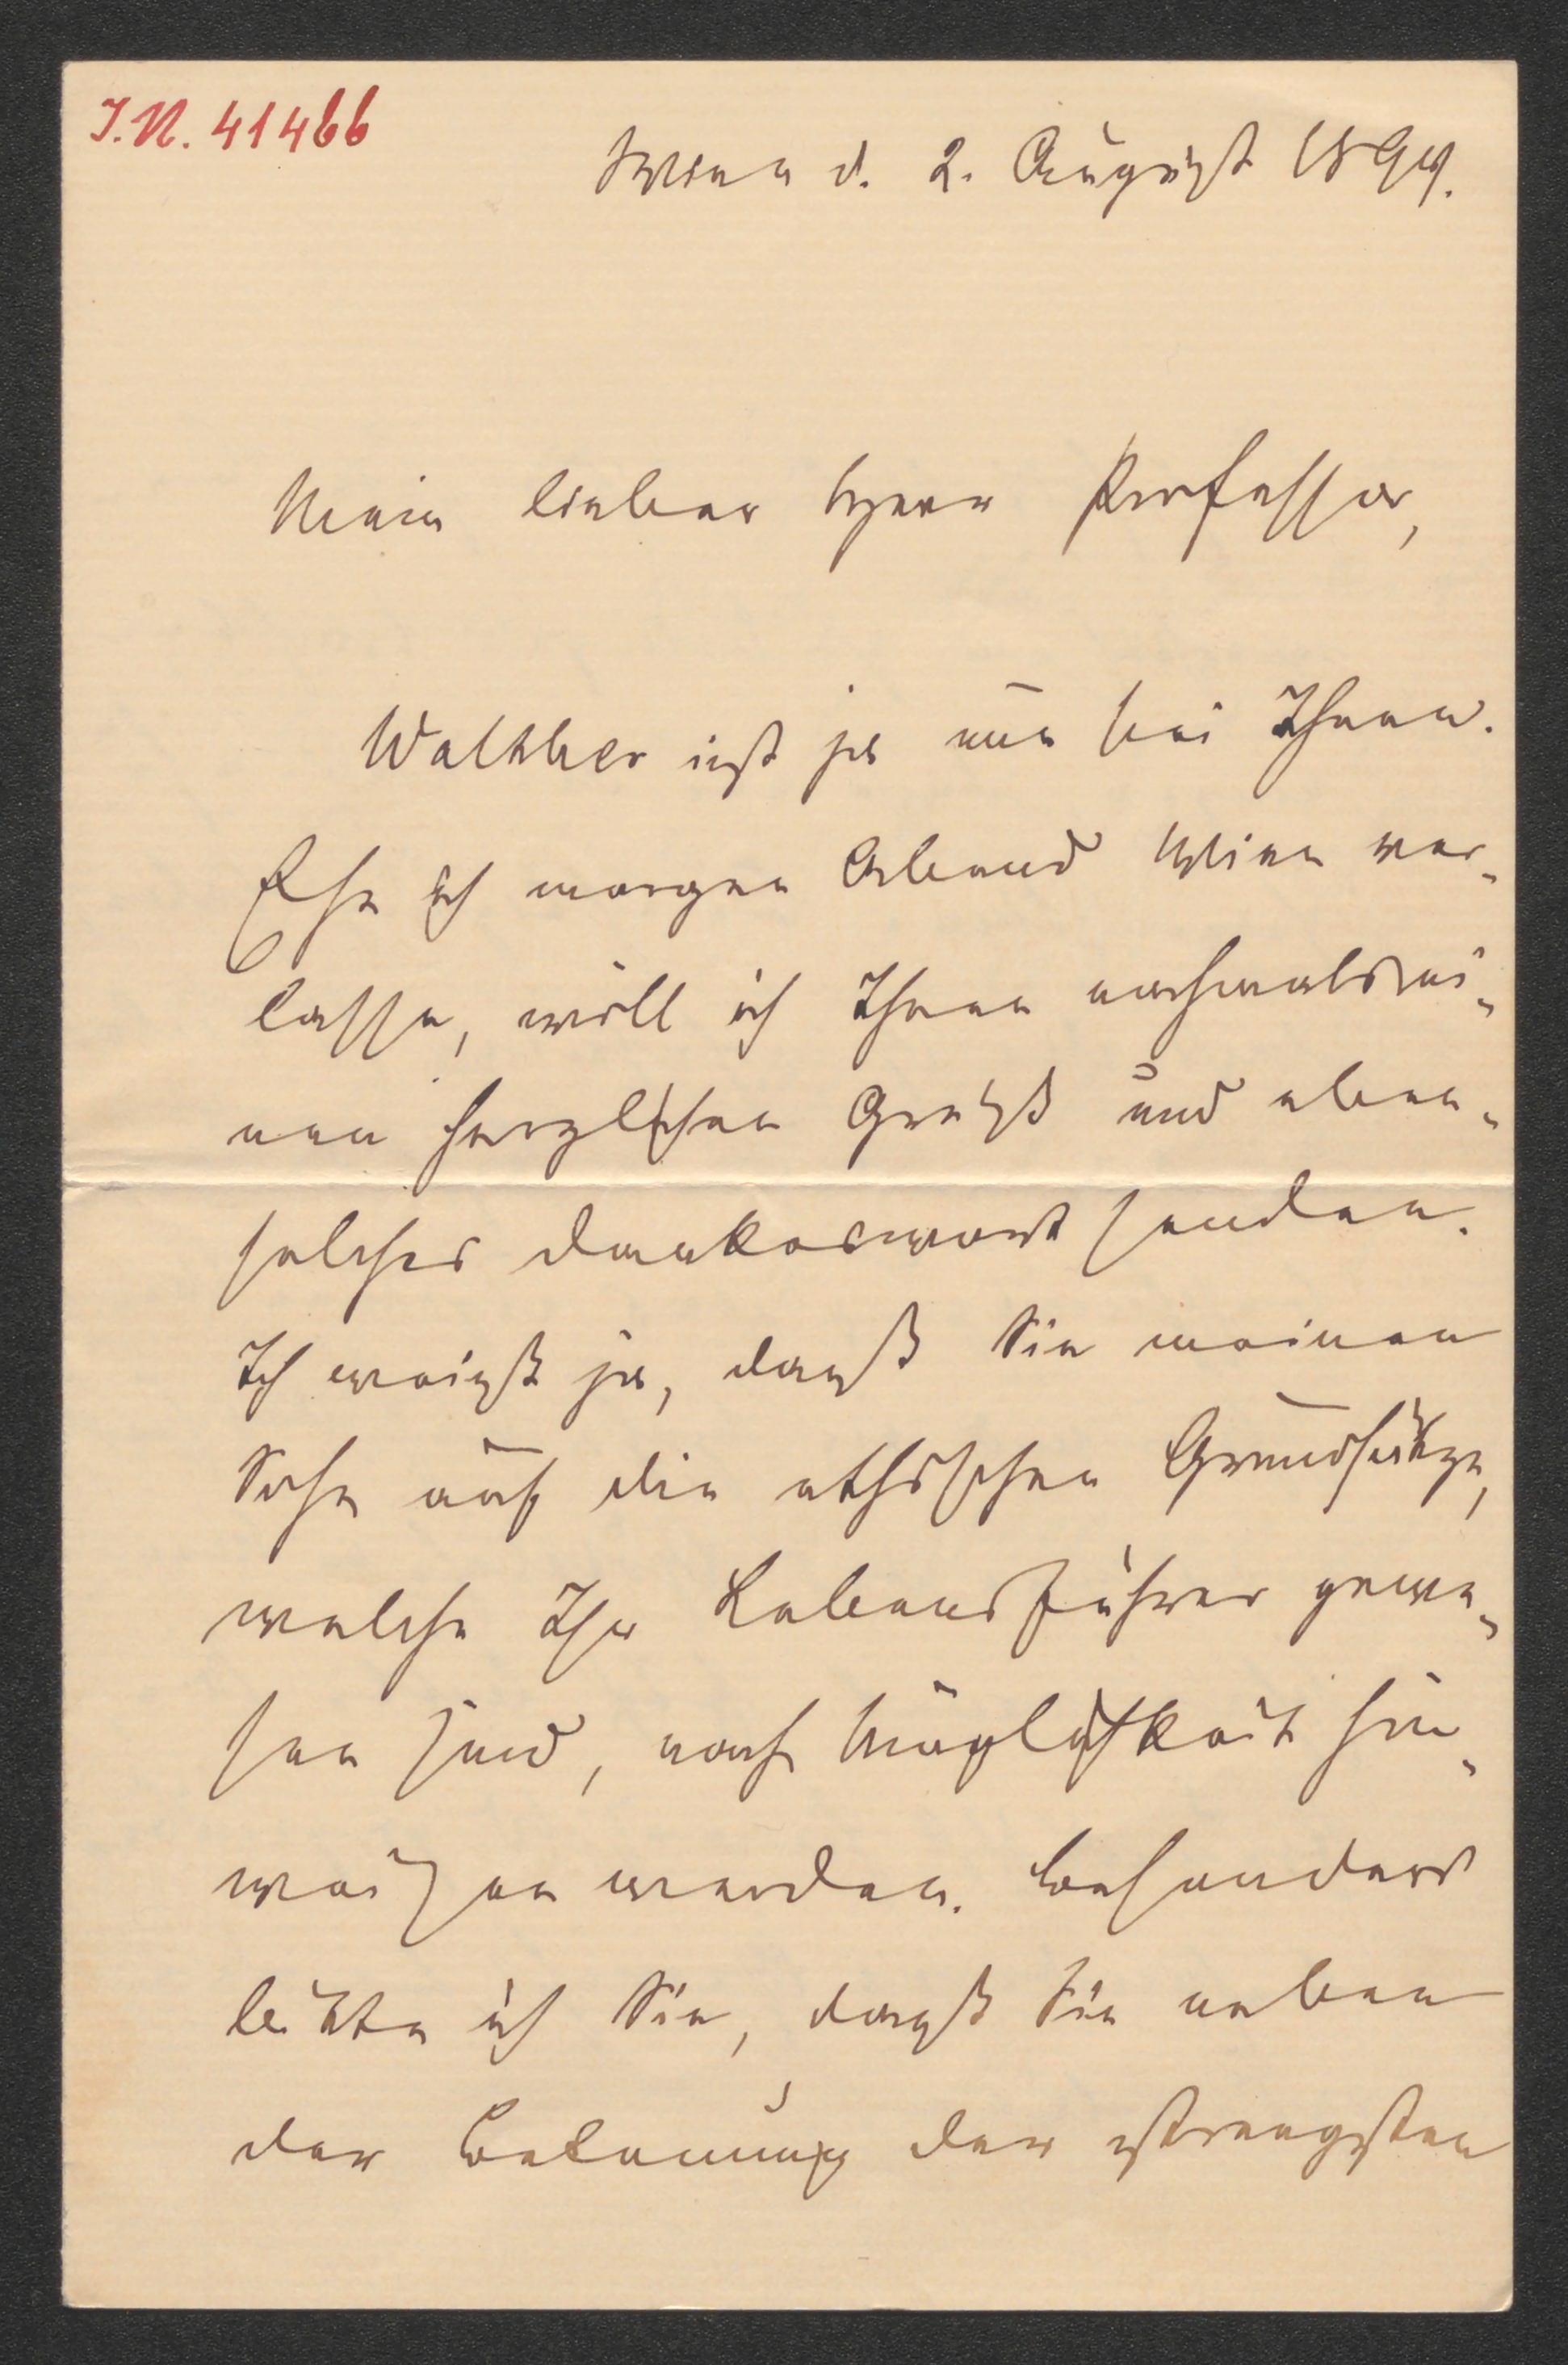 I.N. 41466
Wien d. 2. August 1894.
Mein lieber Herr Professor,
Walther ist ja nun bei Ihnen.
Ehe ich morgen Abend Wien ver-
lasse, will ich Ihnen nochmals ei-
nen herzlichen Gruß und eben-
solches Dankeswort senden.
Ich weiß ja, daß Sie meinen
Sohn auf die ethischen Grundsätze,
welche Ihr Lebensführer gewe-
sen sind, nach Möglichkeit hin-
weisen werden. Besonders
bitte ich Sie, daß Sie neben
der Betonung der strengsten